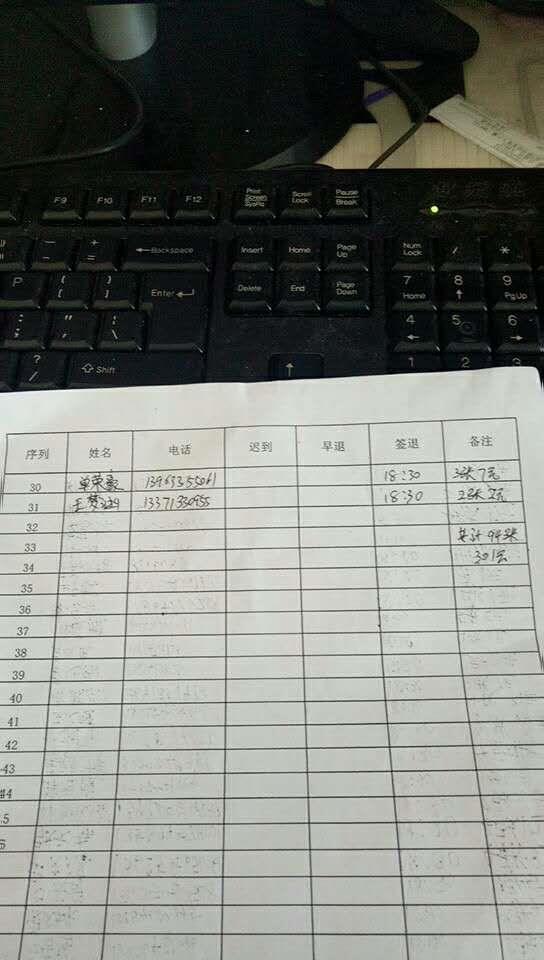 F9 F10 F11 F12 Print Screen SysRq Scroll Lock Pause Break
Backspace Insert Home Page Up Num Lock / *
P { [ } ] Enter Delete End Page Down 7 Home 8 9 PgUp
: ; " ' | \ 4 5 6
? / Shift 1 2 3
序列 姓名 电话 迟到 早退 签退 备注
30 单荣 18:30 3张7元
31 王梦 13371330955 18:30 2张2元
32
33 共计94张
34 301元
35
36
37
38
39
40
41
42
43
44
5
6